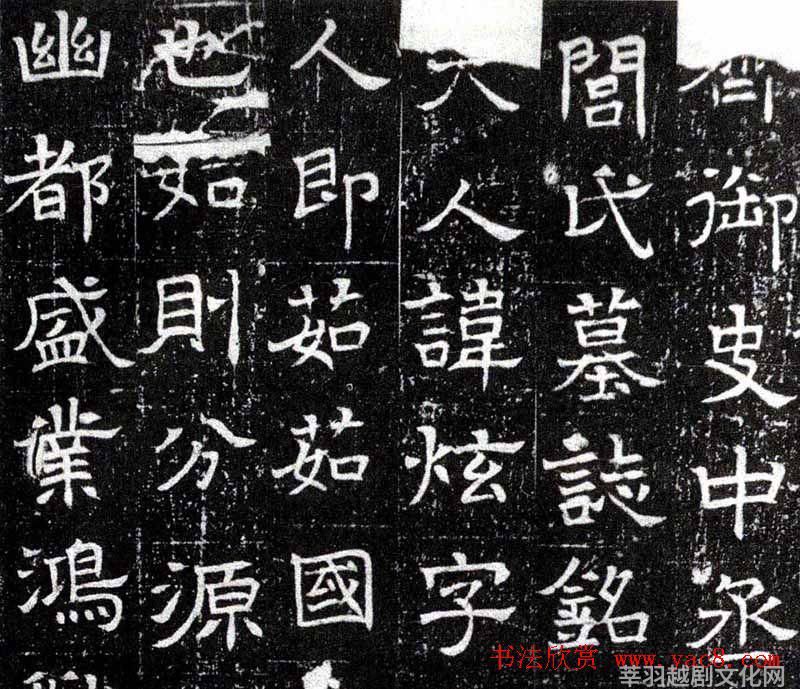 齊御史中丞
閭氏墓誌銘
夫人諱炫字
人即茹茹國
也如則分源
幽都盛業鴻
书法欣赏 www.yac8.com
莘羽越剧文化网